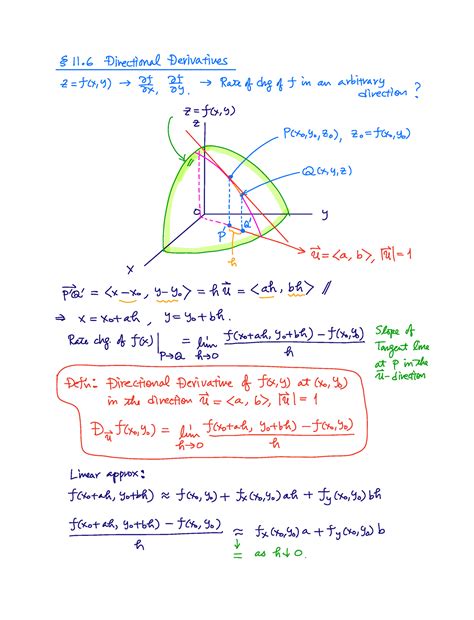 § 11.6 Directional Derivatives
z = f(x,y) → ∂f/∂x, ∂f/∂y. → Rate of chg of f in an arbitrary direction ?
z = f(x,y)
z
P(x₀,y₀,z₀), z₀=f(x₀,y₀)
Q(x,y,z)
O
y
P' Q'
h
x
u⃗ = <a, b>, |u⃗| = 1
P'Q'⃗ = <x-x₀, y-y₀> = h u⃗ = <ah, bh> //
⇒ x = x₀+ah, y = y₀+bh.
Rate chg of f(x)|P→Q = lim h→0 (f(x₀+ah, y₀+bh) - f(x₀,y₀))/h
Slope of
Tangent line
at P in the
u⃗-direction
Defn: Directional Derivative of f(x,y) at (x₀,y₀)
in the direction u⃗ = <a, b>, |u⃗| = 1
D_u⃗ f(x₀,y₀) = lim h→0 (f(x₀+ah, y₀+bh) - f(x₀,y₀))/h
Linear approx:
f(x₀+ah, y₀+bh) ≈ f(x₀,y₀) + fx(x₀,y₀) ah + fy(x₀,y₀) bh
(f(x₀+ah, y₀+bh) - f(x₀,y₀))/h ≈ fx(x₀,y₀) a + fy(x₀,y₀) b
↓
= as h↓0.